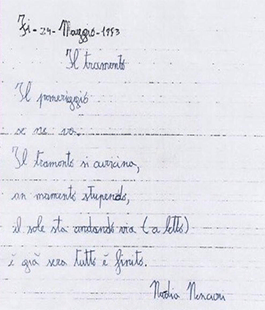 Fi - 24 - Maggio - 1953
Il tramonto
Il pomeriggio
se ne va.
Il tramonto si avvicina,
un momento stupendo,
il sole sta andando via (a letto)
è già sera tutto è finito.
Nadia Nencioni